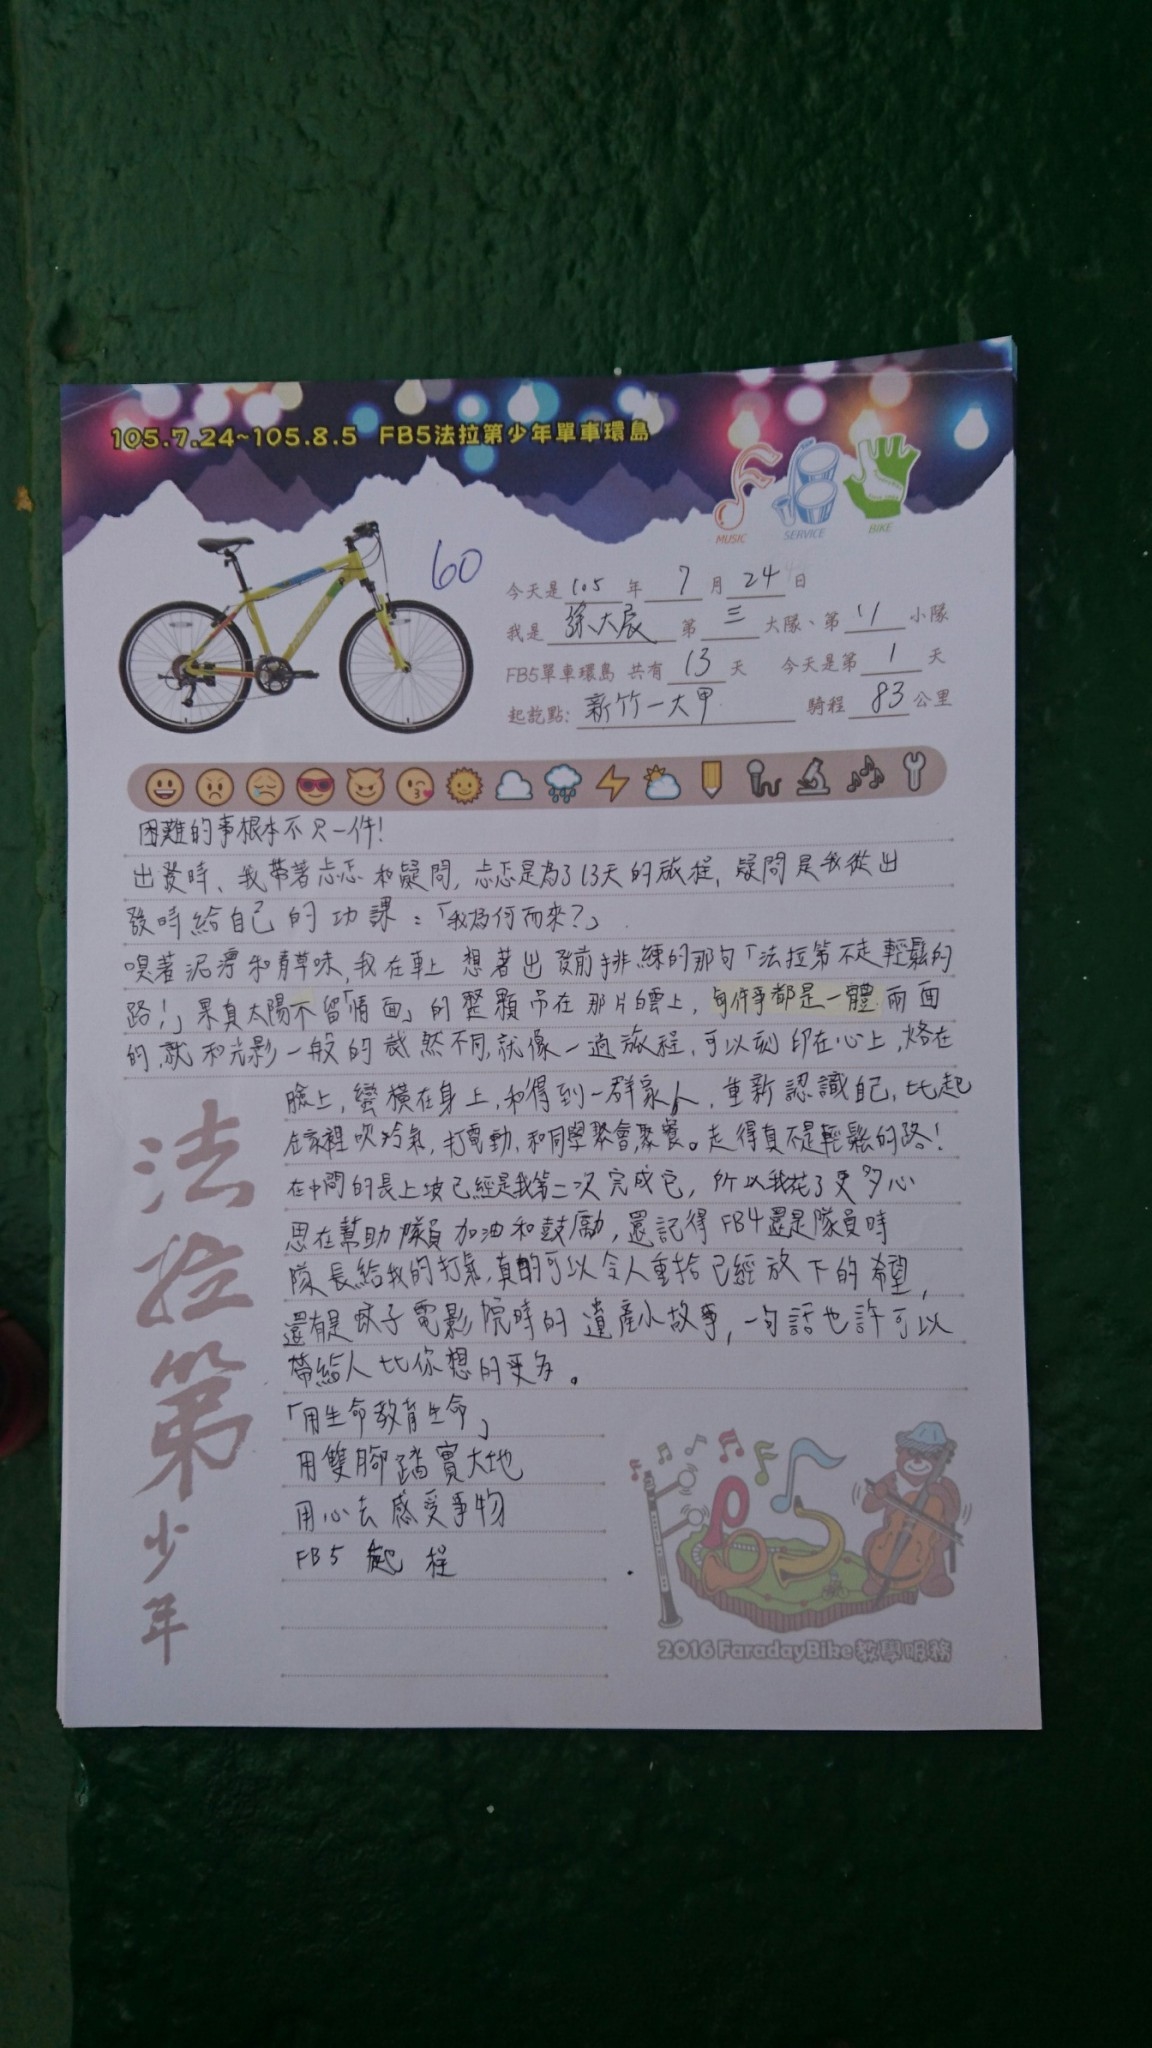 105.7.24~105.8.5 FB5法拉第少年單車環島
MUSIC SERVICE BIKE
60
今天是 105 年 7 月 24 日
我是 徐大宸 第 三 大隊、第 11 小隊
FB5單車環島 共有 13 天 今天是第 1 天
起訖點: 新竹一大甲 騎程 83 公里
困難的事根本不只一件!
出發時、我帶著忐忑和疑問, 忐忑是為了13天的旅程, 疑問是我從出
發時給自己的功課:「我為何而來?」
嗅著泥濘和青草味, 我在車上 想著出發前排練的那句「法拉第不走輕鬆的
路!」果真太陽不留「情面」的整顆吊在那片白雲上, 每件事都是一體兩面
的, 就和光影一般的截然不同, 就像一趟旅程, 可以刻印在心上, 烙在
臉上, 蠻橫在身上, 和得到一群家人, 重新認識自己, 比起
在家裡吹冷氣, 打電動, 和同學聚會,聚餐。走得真不是輕鬆的路!
在中間的長上坡已經是我第二次完成它, 所以我花了更多心
思在幫助隊員加油和鼓勵, 還記得FB4還是隊員時
隊長給我的打氣, 真的可以令人重拾已經放下的希望,
還有是蚊子電影院時的遺產小故事, 一句話也許可以
帶給人比你想的更多。
「用生命教育生命」
用雙腳踏實大地
用心去感受事物
FB5 起程
法拉第少年
2016 FaradayBike教學服務